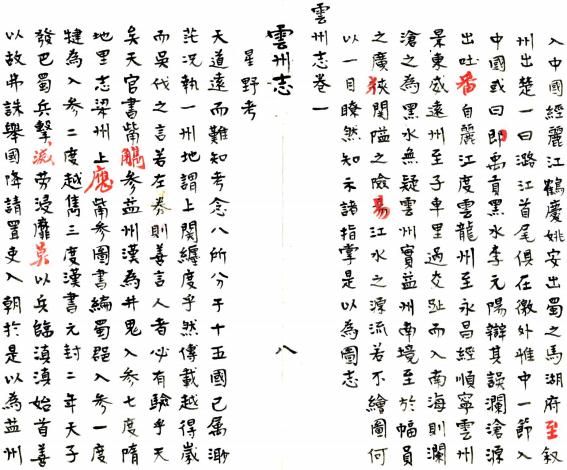 入中國經麗江鶴慶姚安出蜀之馬湖府至敘
州出楚一曰潞江首尾俱在徼外惟中一節入
中國或曰即禹貢黑水李元陽辯其誤瀾滄源
出吐番自麗江度雲龍州至永昌經順寧雲州
景東威遠州至子車里過交趾而入南海則瀾
滄之為黑水無疑雲州實益州南境至於幅員
之廣狹關隘之險易江水之源流若不繪圖何
以一目瞭然知示諸指掌是以為圖志
雲州志卷一
雲州志
八
星野考
天道遠而難知考念八所分于十五國已屬渺
茫況執一州地謂上關纏度乎然傳載越得歲
而吳代之言若左券則善言人者必有驗乎天
吳天官書觜觿參益州漢為井鬼入參七度隋
地里志梁州上應觜參圖書編蜀郡入參一度
犍為入參二度越雋三度漢書元封二年天子
發巴蜀兵擊勞浸靡莫以兵臨滇滇始首善
以故弗誅舉國降請置吏入朝於是以為益州